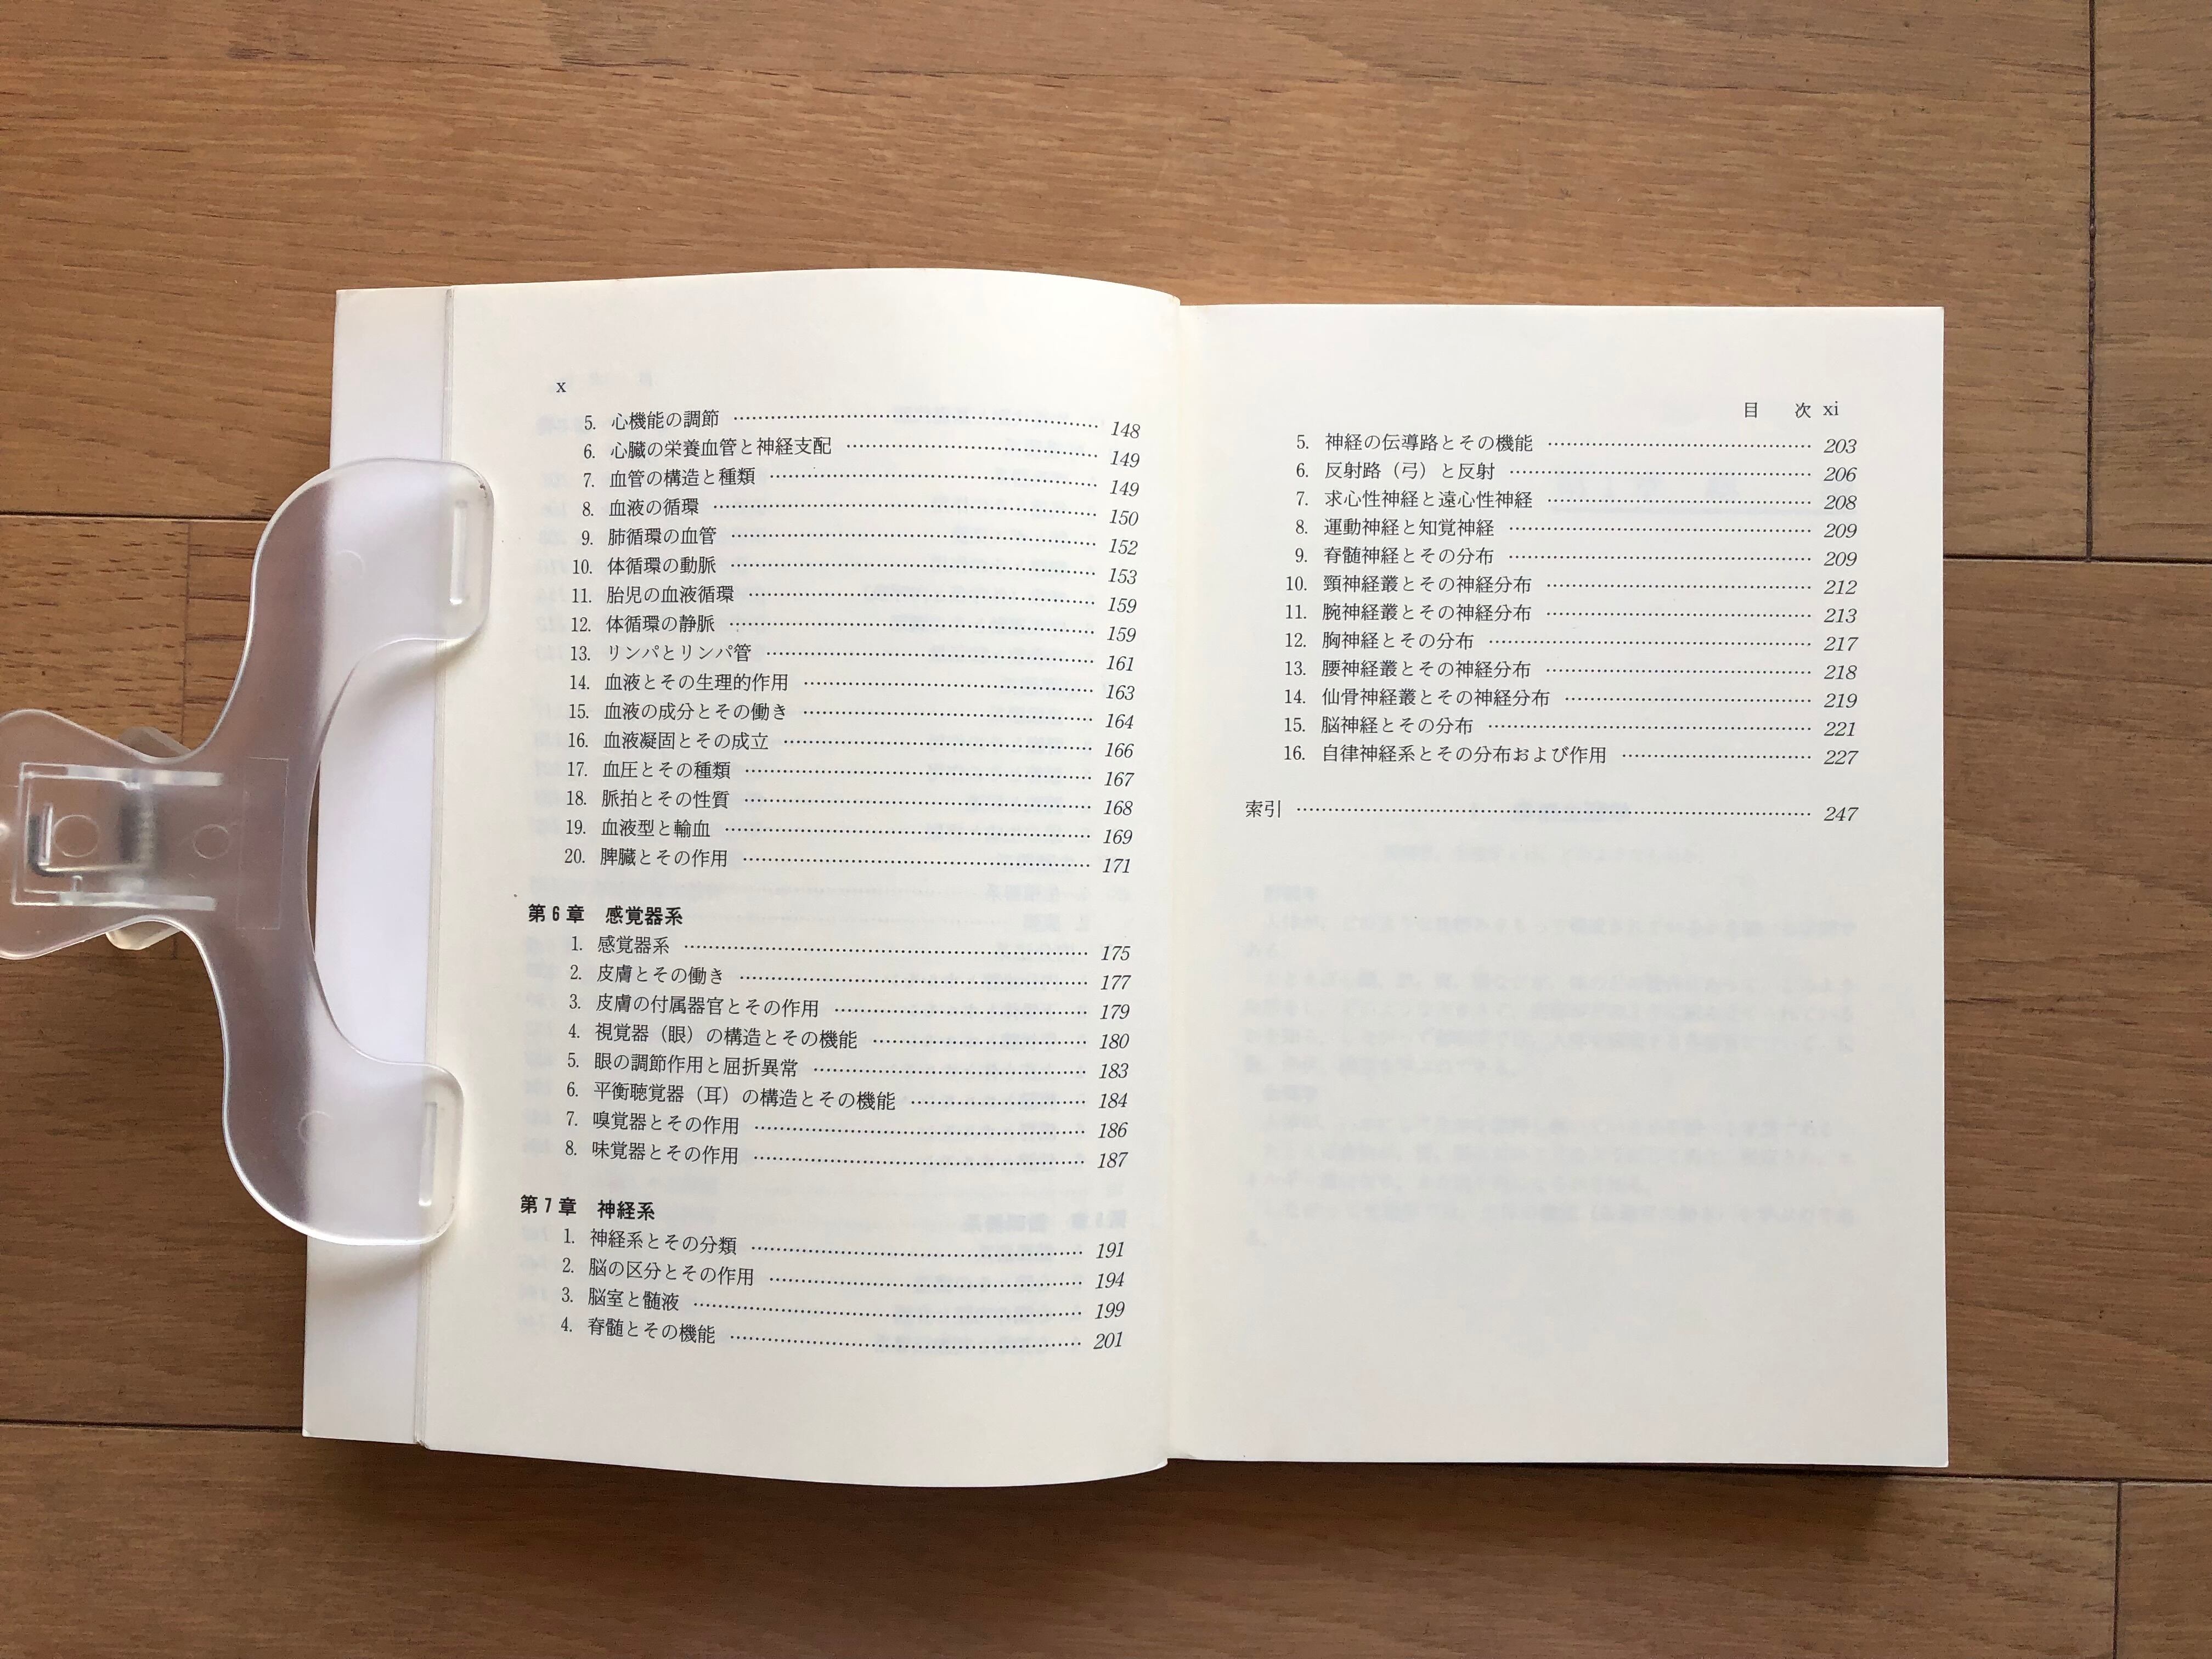 x
5. 心機能の調節 148
6. 心臓の栄養血管と神経支配 149
7. 血管の構造と種類 149
8. 血液の循環 150
9. 肺循環の血管 152
10. 体循環の動脈 153
11. 胎児の血液循環 159
12. 体循環の静脈 159
13. リンパとリンパ管 161
14. 血液とその生理的作用 163
15. 血液の成分とその働き 164
16. 血液凝固とその成立 166
17. 血圧とその種類 167
18. 脈拍とその性質 168
19. 血液型と輸血 169
20. 脾臓とその作用 171
第6章 感覚器系
1. 感覚器系 175
2. 皮膚とその働き 177
3. 皮膚の付属器官とその作用 179
4. 視覚器（眼）の構造とその機能 180
5. 眼の調節作用と屈折異常 183
6. 平衡聴覚器（耳）の構造とその機能 184
7. 嗅覚器とその作用 186
8. 味覚器とその作用 187
第7章 神経系
1. 神経系とその分類 191
2. 脳の区分とその作用 194
3. 脳室と髄液 199
4. 脊髄とその機能 201
目 次 xi
5. 神経の伝導路とその機能 203
6. 反射路（弓）と反射 206
7. 求心性神経と遠心性神経 208
8. 運動神経と知覚神経 209
9. 脊髄神経とその分布 209
10. 頸神経叢とその神経分布 212
11. 腕神経叢とその神経分布 213
12. 胸神経とその分布 217
13. 腰神経叢とその神経分布 218
14. 仙骨神経叢とその神経分布 219
15. 脳神経とその分布 221
16. 自律神経系とその分布および作用 227
索引 247